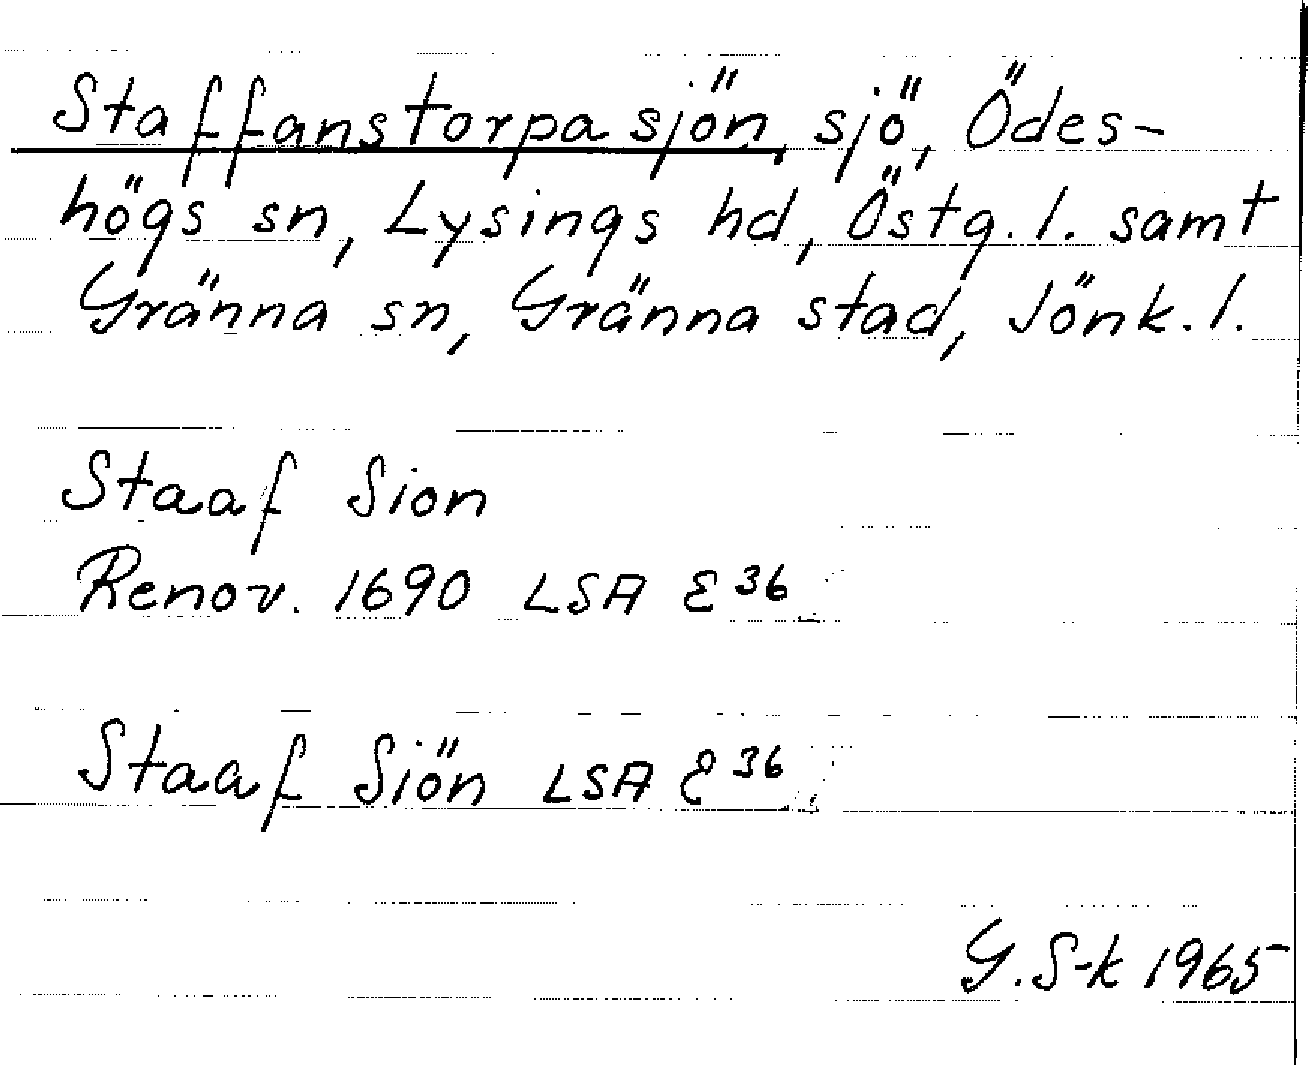 Staffanstorpasjön, sjö, Ödes-
högs sn, Lysings hd, Östg. l. samt
Gränna sn, Gränna stad, Jönk. l.
Staaf Sion
Renov. 1690 LSA E 36
Staaf Siön LSA E 36
G. S-k 1965